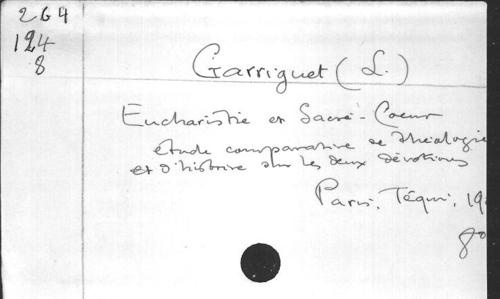 264
124
8
Garriguet (L.)
Eucharistie et Sacré-Coeur
étude comparative de théologie
et d'histoire sur les deux dévotions
Paris, Téqui, 19
8°